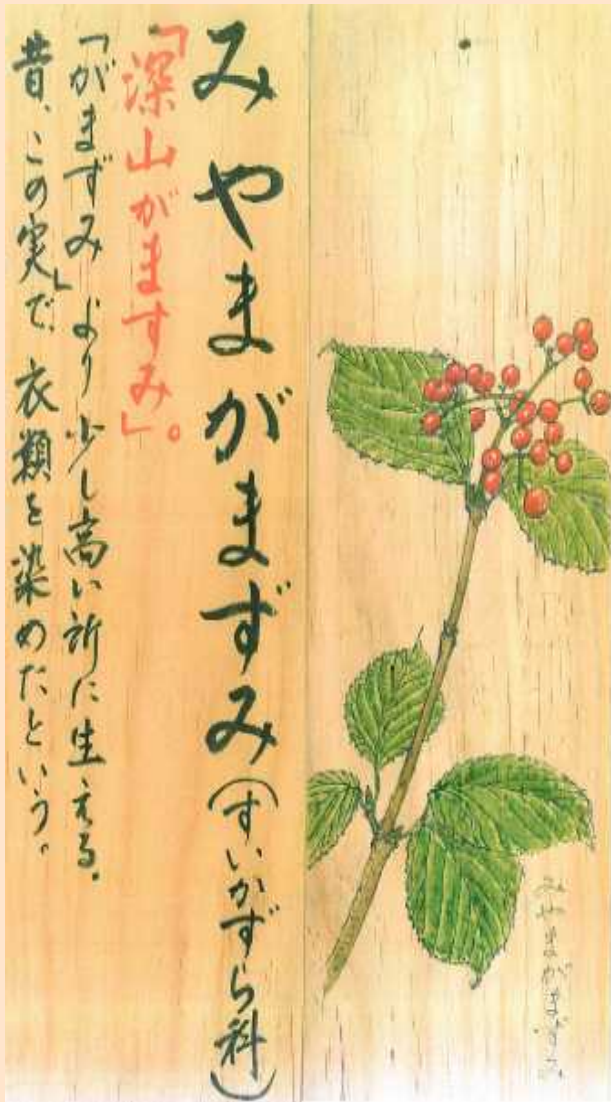 みやまがまずみ(すいかずら科)
「深山がますみ」。
「がまずみ」より少し高い所に生える。
昔、この実で、衣類を染めたという。
みやまがまずみ